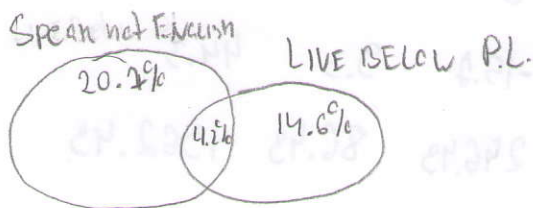 Speak not English
LIVE BELOW P.L.
20.7%
4.2%
14.6%